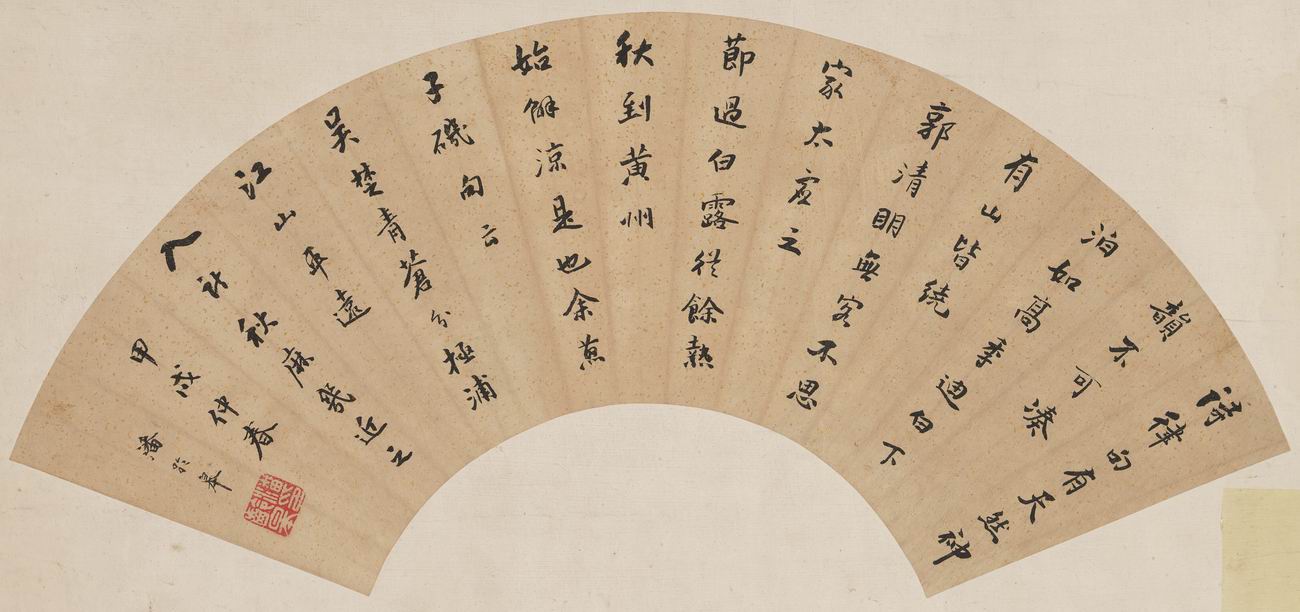 詩律句有天然神
韻不可湊
泊如高季迪白下
有山皆繞
郭清明無客不思
家太虛之
節過白露猶餘熱
秋到黃州
始解涼是也余燕
子磯句云
吳楚青蒼分極浦
江山平遠
入新秋庶幾近之
甲戌仲春
潘齡皋